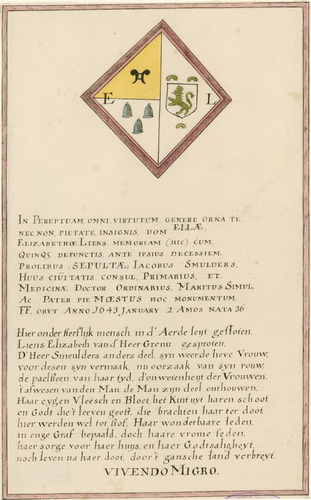 E L
IN PEREPTUAM OMNI VIRTUTUM, GENERE ORNA TE
NEC.NON, PIETATE INSIGNIS, DOM ELLÆ,
ELIZABETHŒ LIENS, MEMORIAM (HIC) CUM,
QUINQS, DEFUNCTIS, ANTE IPSIUS DECESSIEM,
PROLIBUS SEPULTÆ, IACOBUS SMULDERS,
HUUS CIŨITATIS CONSUL, PRIMARIUS, ET
MEDICINÆ, DOCTOR ORDINARIUS, MARITUS SIMUL,
AC PATER PIE MŒSTUS HOC MONUMENTUM,
FF. OBYT ANNO, 1643 JANUARY 2 AMOS NATA 36
Hier onder sterflijk mensch, in d' Aerde leyt gesloten.
Liens Elizabeth van d' Heer Grenu gesproten.
D' Heer Smeulders anders deel, syn weerde lieve Vrouw,
voor desen syn vermaak, nu oorzaak van syn rouw,
de paelsteen van haar tyd, d'onwetenheyt der Vrouwen,
t'afwesen van den Man, de Man zijn deel onthouwen,
Haar eygen Vleesch en Bloet het Kint uyt haren schoot
en Godt die't leeven geeft, die brachten haar ter doot
hier werden wel tot stof, Haar wonderbare leden,
in enge Graf bepaald, doch haare vrome seden,
haer sorge voor haer huys, en haer Godtsaligheyt,
noch leven na haer doot, door't gansche land verbreyt.
VIVENDO MIGRO.